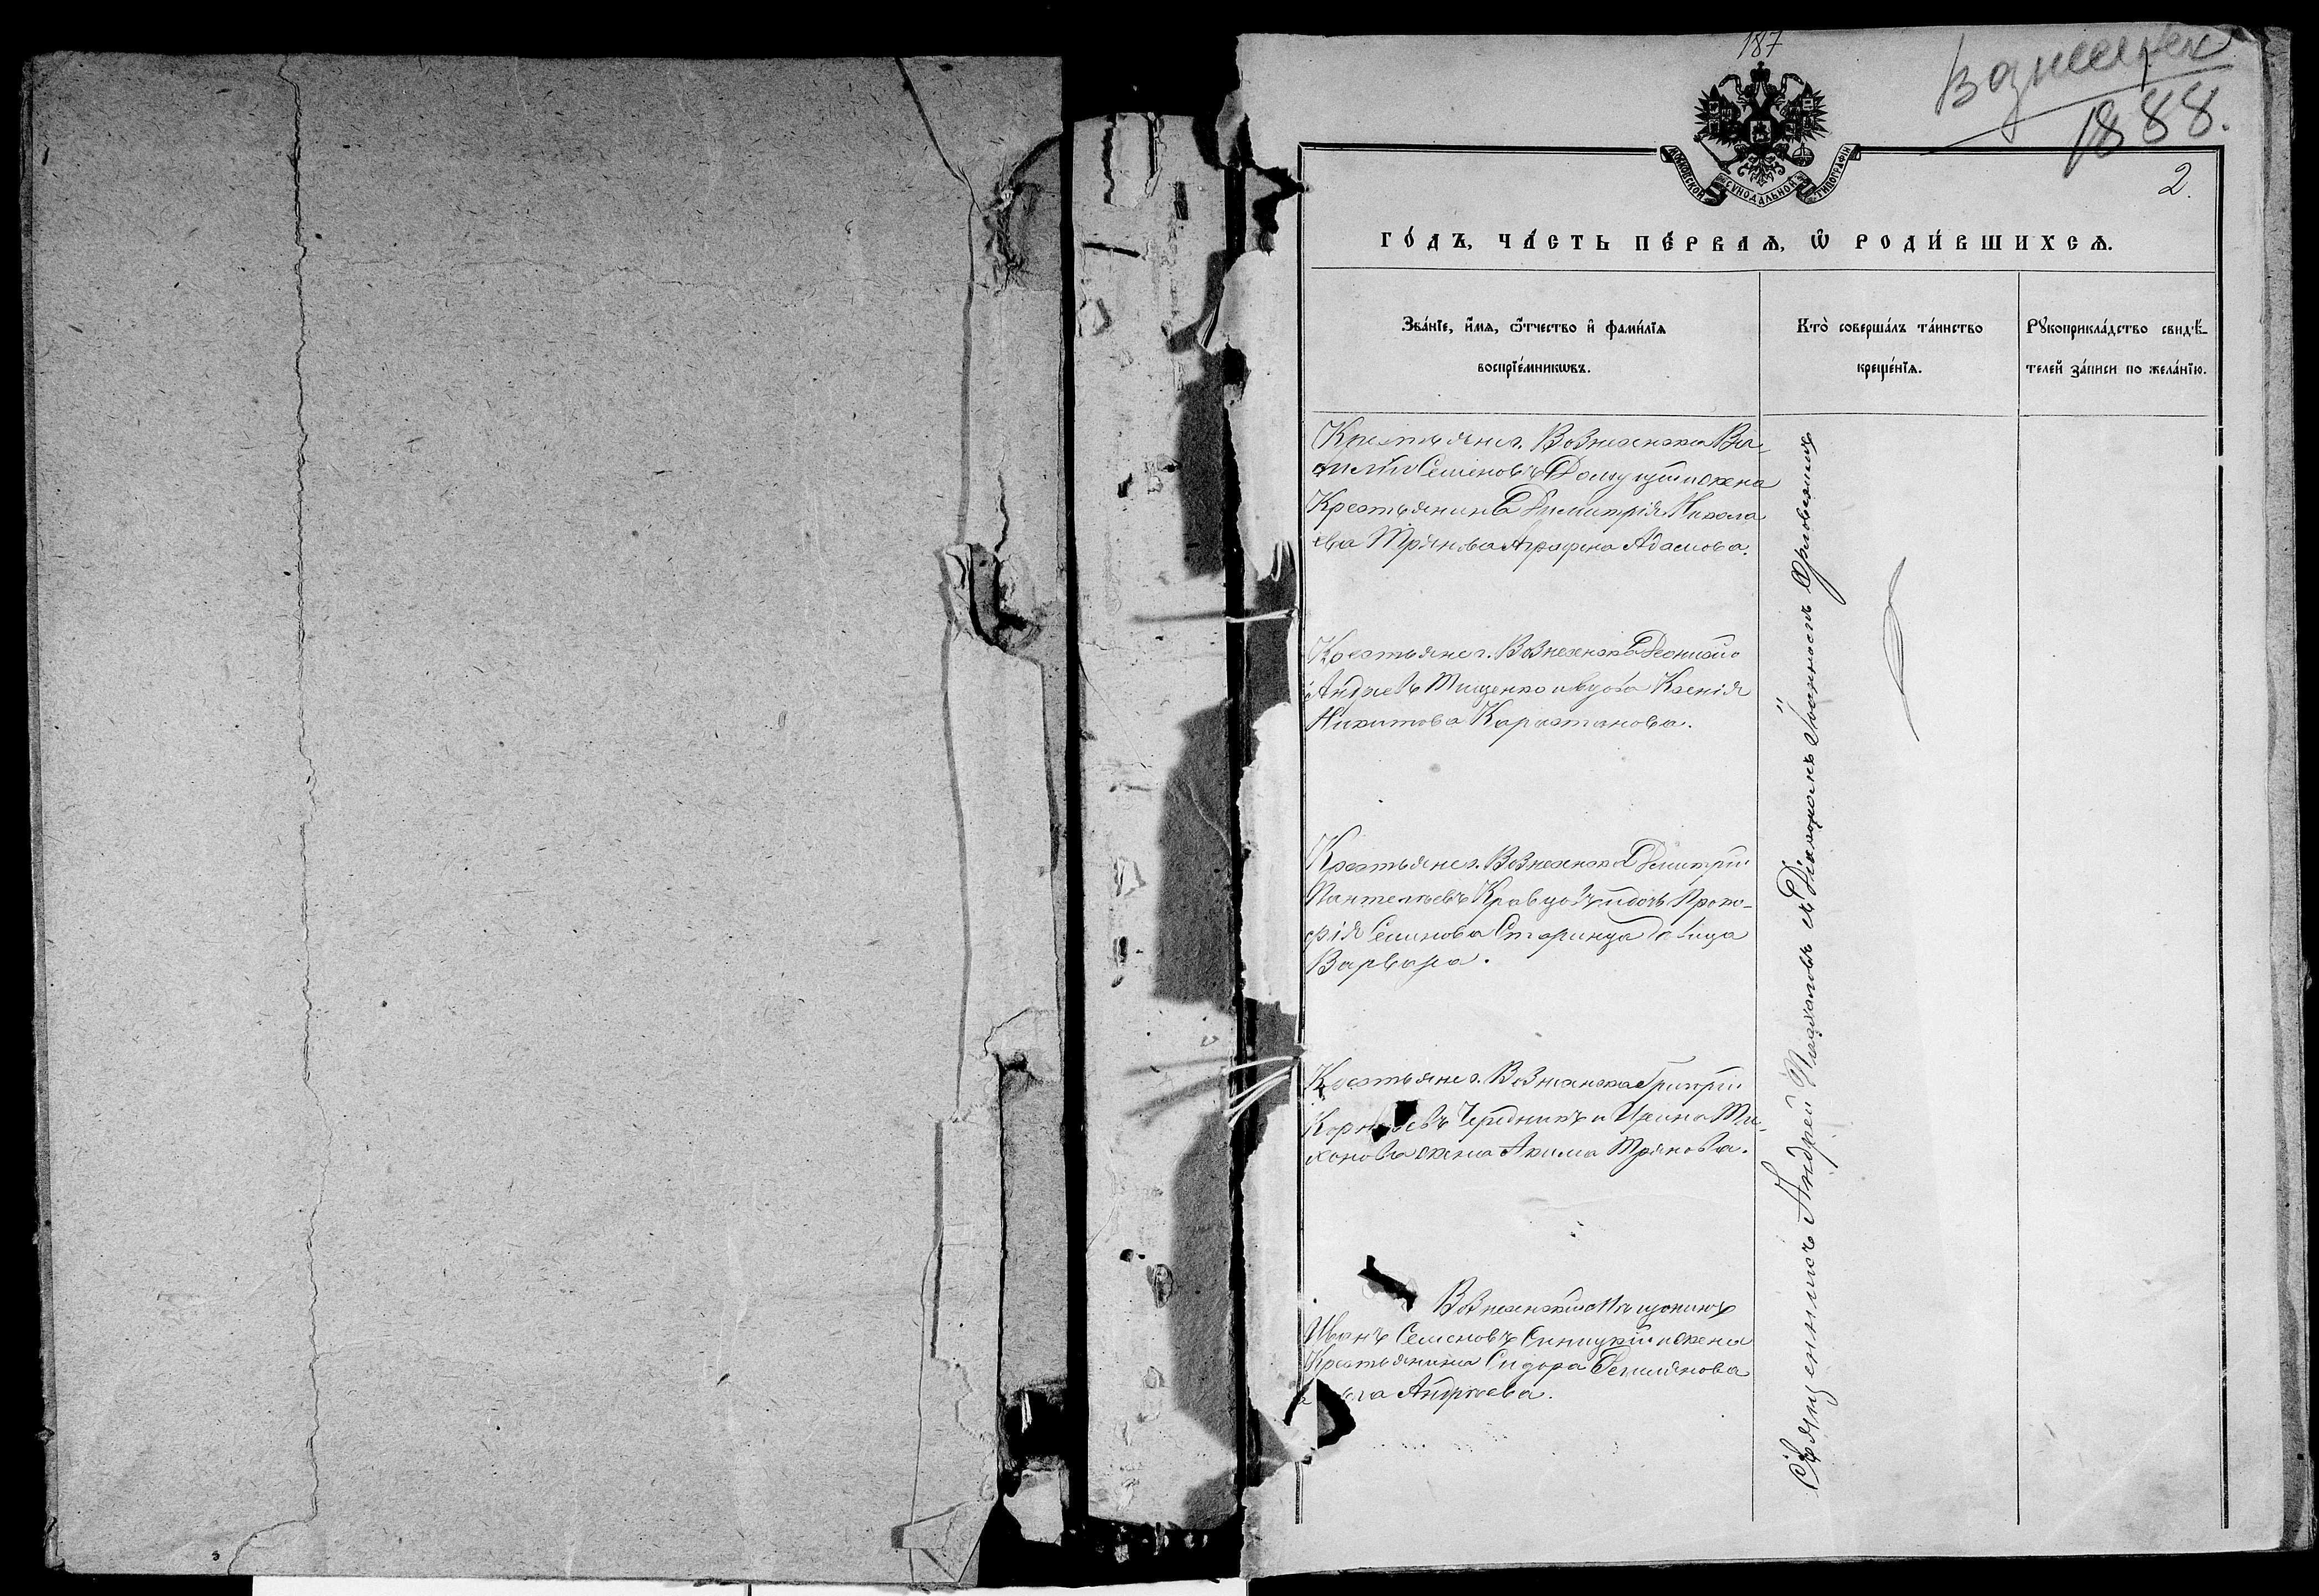 187
Вознесенск
1888.
2.
МОСКОВСКОЙ СѴНОДАЛЬНОЙ ТИПОГРАФІИ
ГО́ДЪ, ЧА́СТЬ ПЕ́РВАѦ, Ѽ РОДИ́ВШИХСѦ.
Зва́нїе, и҆́мѧ, ѻ҆́тчество и҆ фами́лїѧ
воспрїе́мникѡвъ.
Кто̀ соверша́лъ та́инство
креще́нїѧ.
Рꙋкоприкла́дство свидѣ́-
телей за́писи по жела́нїю.
Крестьяне г. Вознесенска Ва-
силій Семеновъ и жена
Крестьянина Димитрія Никола
ева Трянова Аграфена Адамова.
Крестьяне г. Вознесенска Деонисій
Андреевъ Тищенко и вдова Ксенія
Никитова Карастанова.
Крестьяне г. Вознесенска Димитрій
Пантелѣевъ Кравцовъ и дочь Проко-
фія Семенова Старинца девица
Варвара.
Крестьяне г. Вознесенска Григорій
Корнѣевъ Чередникъ и Ирина Ти-
хонова жена Акима Трянова.
Вознесенскій Мѣщанинъ
Иванъ Семеновъ Синицкій и жена
Крестьянина Сидора Демьянова
Андреева.
Священникъ Андрей съ Діакономъ Іоанномъ